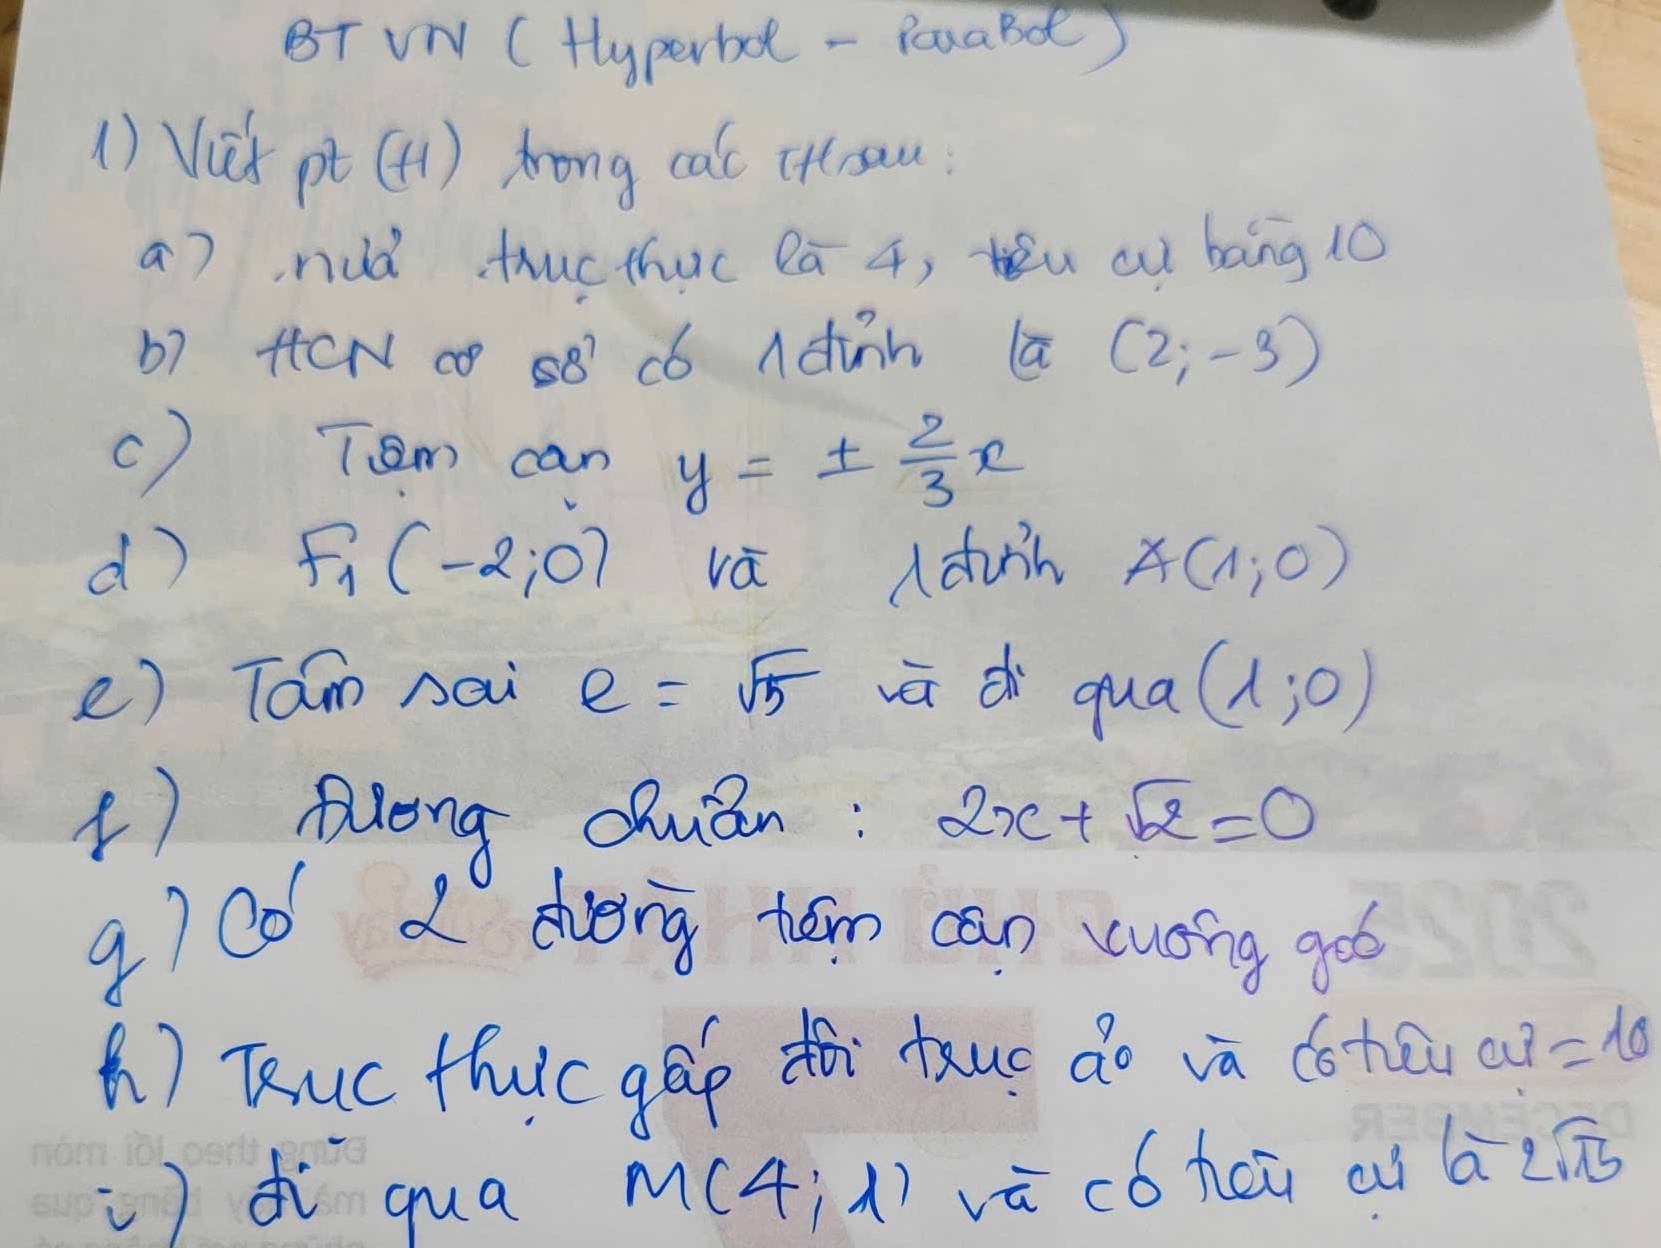 BTVN (Hyperbol - ParaBol)
1) Viết pt (H) trong các TH sau:
a) nửa trục thực là 4, tiêu cự bằng 10
b) HCN cơ sở có 1 đỉnh là (2; -3)
c) Tiệm cận y = ± 2/3 x
d) F₁(-2;0) và 1 đỉnh A(1;0)
e) Tâm sai e = √5 và đi qua (1;0)
f) Đường chuẩn : 2x + √2 = 0
g) Có 2 đường tiệm cận vuông góc
h) Trục thực gấp đôi trục ảo và có tiêu cự = 10
i) đi qua M(4;1) và có tiêu cự là 2√15
2025
CHỦ NHẬT
DECEMBER
Đừng theo lối mòn